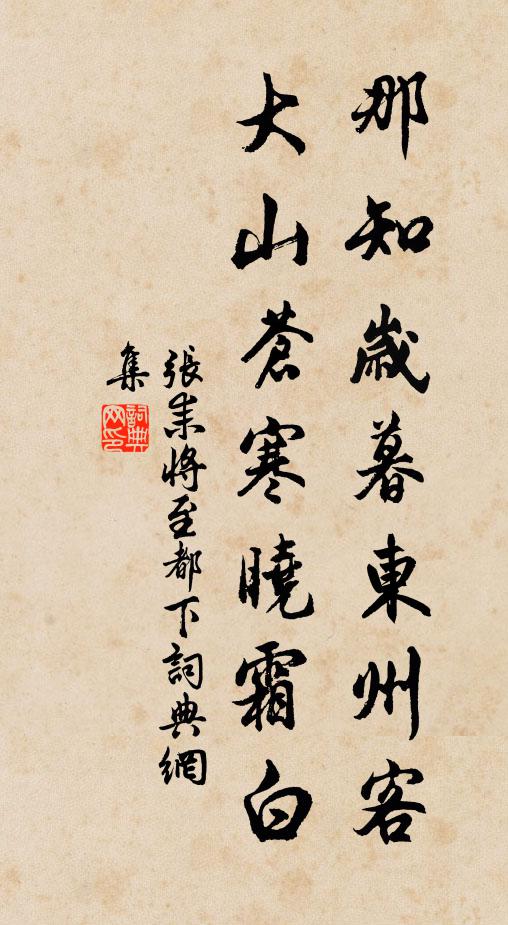 那知歲暮東州客
大山蒼寒曉霜白
張耒將至都下詞典網
集
詞典網印